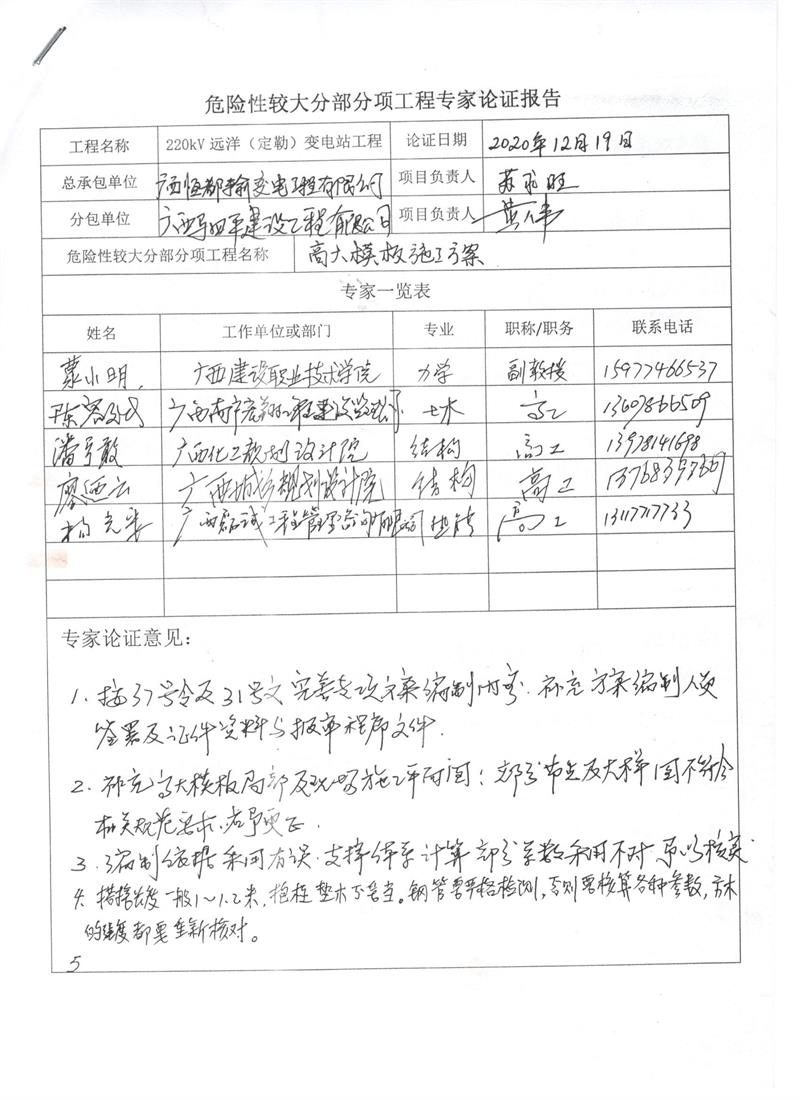 危险性较大分部分项工程专家论证报告
工程名称 220kV 远洋（定勒）变电站工程 论证日期 2020年12月19日
总承包单位 广西恒都输变电工程有限公司 项目负责人 苏
分包单位 广西 建设工程有限公司 项目负责人 黄伟
危险性较大分部分项工程名称 高大模板施工方案
专家一览表
姓名 工作单位或部门 专业 职称/职务 联系电话
蒙小明 广西建设职业技术学院 力学 副教授 15977466537
陈 广西南宁 土木 高工 13607866509
潘 敢 广西化工规划设计院 结构 高工 13978141698
廖西云 广西城乡规划设计院 结构 高工
杨 广西 诚工程管理咨询有限公司 高工 13117717733
专家论证意见：
1. 按37号令及31号文完善专项方案编制内容. 补充方案编制人员
签署及证件资料与报审程序文件.
2. 补充高大模板局部及现场施工平面图；部分节点及大样图不符合
相关规范要求, 应予更正.
3. 编制依据采用有误. 支撑体系计算部分系数采用不对 予以核实
4. 搭接长度一般1～1.2米，抱柱垫木不妥当。钢管要严格检测，否则要核算各种参数，方木
的强度都要重新核对。
5